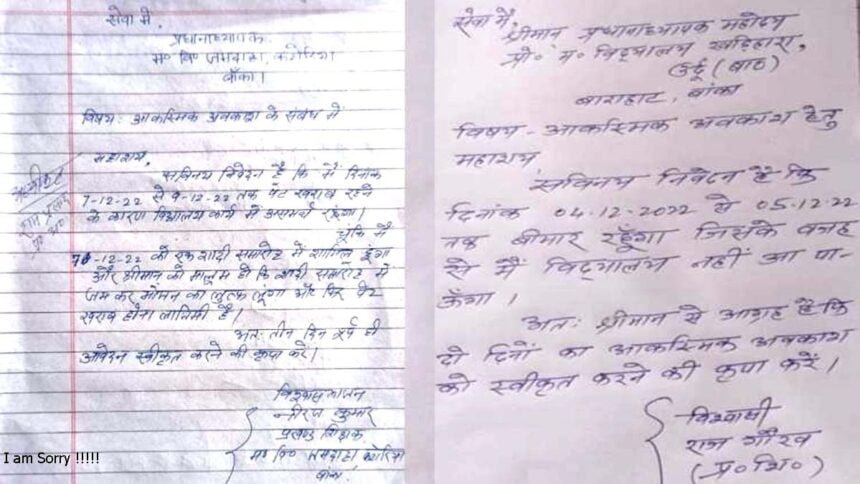 सेवा में,
प्रधानाध्यापक
म० वि० जमदाहा,
बाँका।
विषय: आकस्मिक अवकाश के संबंध में
महाशय,
सविनय निवेदन है कि मैं दिनांक
7-12-22 से 9-12-22 तक पेट खराब रहने
के कारण विद्यालय कार्य में असमर्थ रहूंगा।
चूंकि मैं
-12-22 को एक शादी समारोह में शामिल हूंगा
और श्रीमान को मालूम हो कि शादी समारोह में
जम कर भोजन का लुत्फ लूंगा और फिर पेट
खराब होना लाजिमी है।
अतः तीन दिन पूर्व ही
आवेदन स्वीकृत करने की कृपा करें।
विश्वासभाजन
नीरज कुमार
प्रखण्ड शिक्षक
म० वि० जमदाहा
बांका
I am Sorry !!!!!
सेवा में,
श्रीमान प्रधानाध्यापक महोदय
प्रो० म० विद्यालय खडिहारा,
उर्दू (बाठ)
बाराहाट, बांका
विषय - आकस्मिक अवकाश हेतु
महाशय
सविनय निवेदन है कि
दिनांक 04-12-2022 से 05-12-22
तक बीमार रहूँगा जिसके वजह
से मैं विद्यालय नहीं आ पा-
ऊँगा ।
अतः श्रीमान से आग्रह है कि
दो दिनों का आकस्मिक अवकाश
को स्वीकृत करने की कृपा करें।
विश्वासी
राज गौरव
(प्र० शि०)